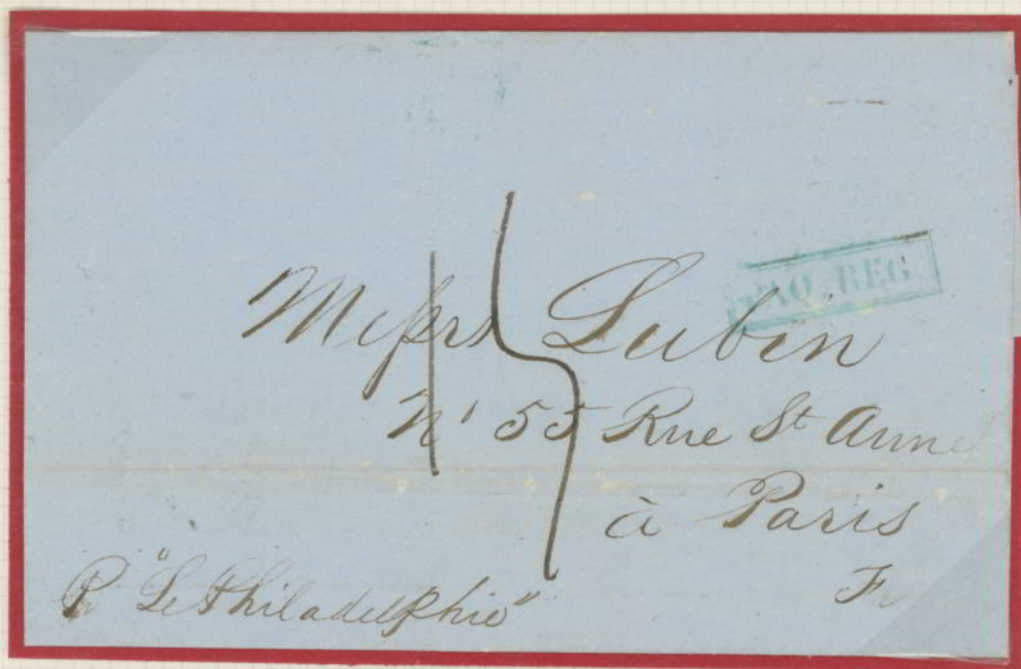 PAQ. REG.
15
Messrs Lubin
N' 55 Rue St Anne
à Paris
Fr
Pr "Le Philadelphie"